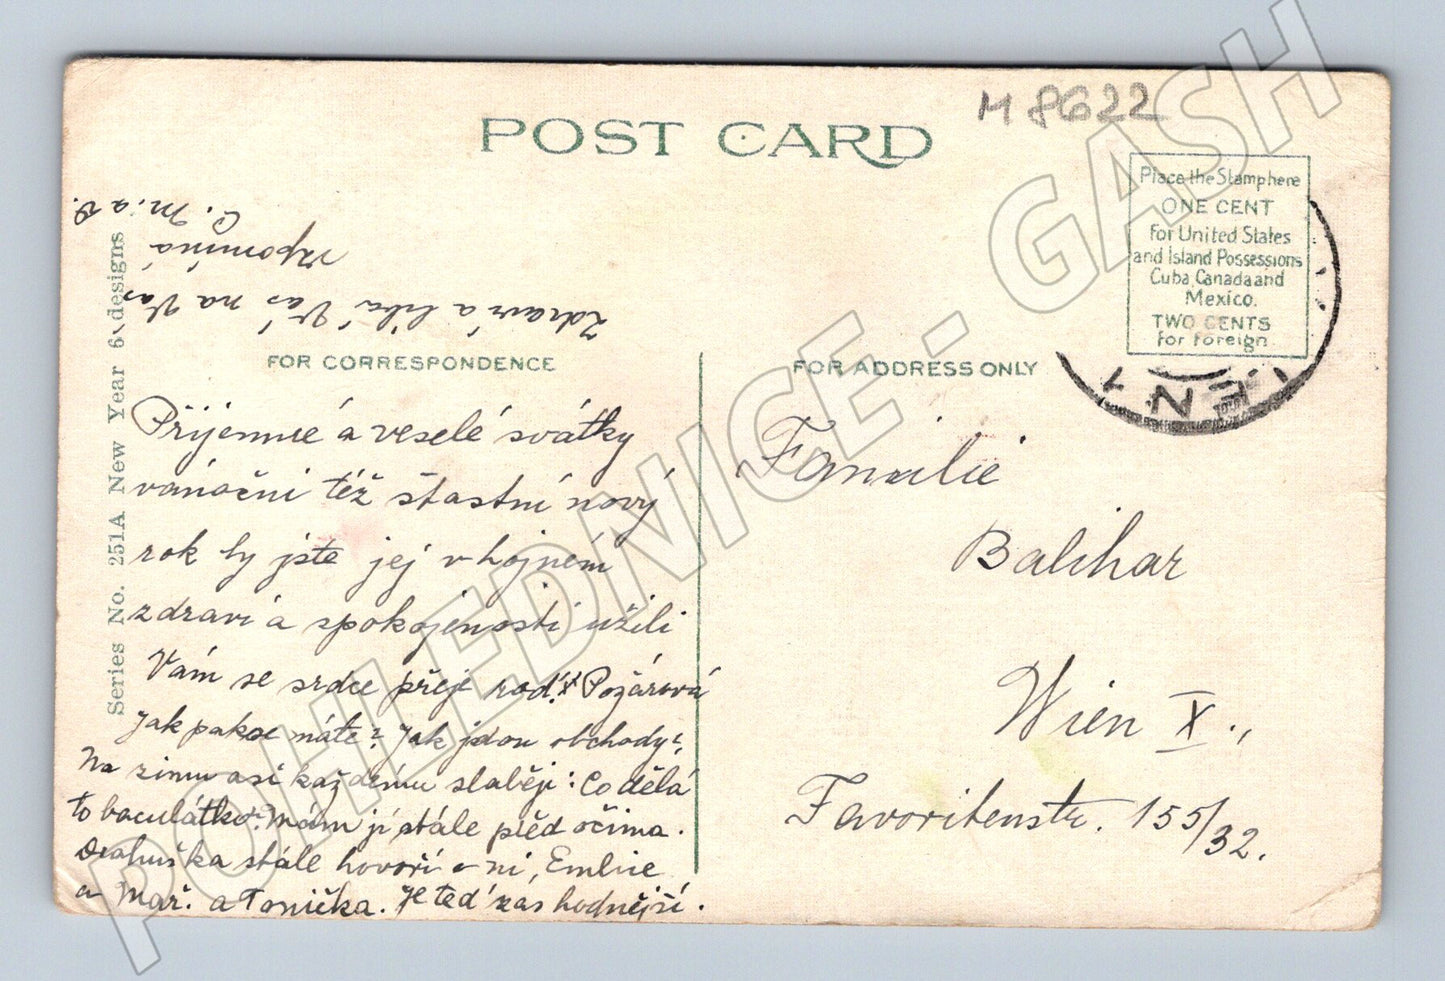 POST CARD
M 8622
Place the Stamp here
ONE CENT
for United States
and Island Possessions
Cuba, Canada and
Mexico.
TWO CENTS
for foreign
Zdraví a líbá Vás na Vás
vzpomíná
C. M. a D.
FOR CORRESPONDENCE
FOR ADDRESS ONLY
Příjemné a veselé svátky
vánoční též šťastní nový
rok by jste jej v hojném
zdraví a spokojenosti užili
Vám se srdce přeje rod. Požárová
Jak pak se máte? Jak jdou obchody?
Na zimu asi každému slaběji: Co dělá
to baculátko? Mám jí stále před očima.
Drahuška stále hovoří o ní,
a Mař. a Tonička. Je teď zas hodnější.
Familie
Balihar
Wien X.,
Favoritenstr. 155/32.
Series No. 251A New Year 6 designs
IEN 1
POHLEDNICE - GASH